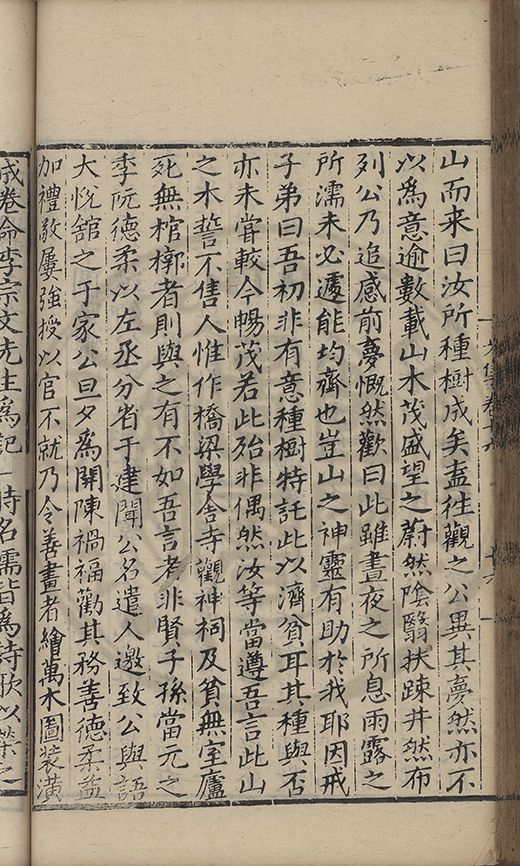 山而来曰汝所種樹成矣盍徃觀之公異其夣然亦不
以爲意逾數載山木茂盛望之蔚然陰翳扶踈井然布
列公乃追感前夣慨然歎曰此雖晝夜之所息雨露之
所濡未必遽能均齊也豈山之神靈有助於我耶因戒
子弟曰吾初非有意種樹特託此以濟貧耳其種與否
亦未甞較今暢茂若此殆非偶然汝等當遵吾言此山
之木誓不售人惟作橋梁學舎寺觀神祠及貧無室廬
死無棺槨者則與之有不如吾言者非賢子孫當元之
季阮德柔以左丞分省于建聞公名遣人邀致公與語
大悅舘之于家公旦夕爲開陳禍福勸其務善德柔益
加禮敬屢強授以官不就乃令善畫者繪萬木圖装潢
成卷命李宗文先生爲記一時名儒皆爲詩歌以榮之